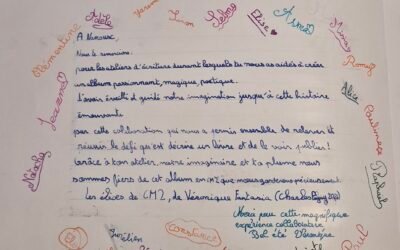 Yasmine
Adèle
Iwan
Selma
Elise
Asma
Romy
Clémentine
A Véroux,
Nous te remercions
pour les ateliers d'écriture durant lesquels tu nous as aidés à créer
un album passionnant, magique, poétique.
d'avoir éveillé et guidé notre imagination jusqu'à cette histoire
émouvante
par cette collaboration qui nous a permis ensemble de relever et
réussir le défi qu'est d'écrire un livre et de le voir publier!
Grâce à ton atelier, notre imaginaire et ta plume nous
sommes fiers de cet album en CM2 que nous garderons précieusement.
Les élèves de CM2, de Véronique Fantasia (Charles
Alix
Pauline
Raphaël
Natacha
Merci pour cette magnifique
expérience collaborative.
Bel été Véronique
Constance